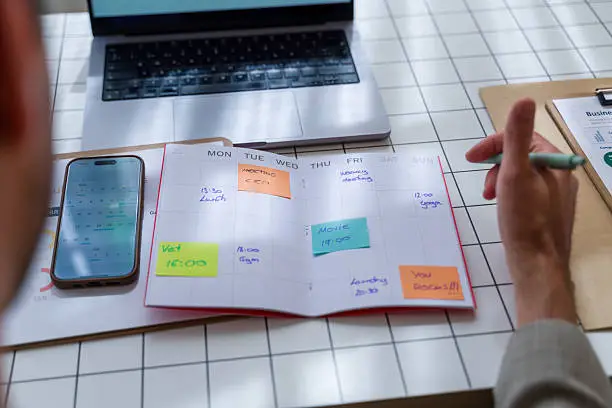 MON TUE WED THU FRI SAT SUN
MEETING
CEO
13:30
Lunch
Weekly
meeting
12:00
Yoga
Movie
19:00
Vet
16:00
18:00
Gym
Laundry
20:30
YOU
ROCK!!!
Business